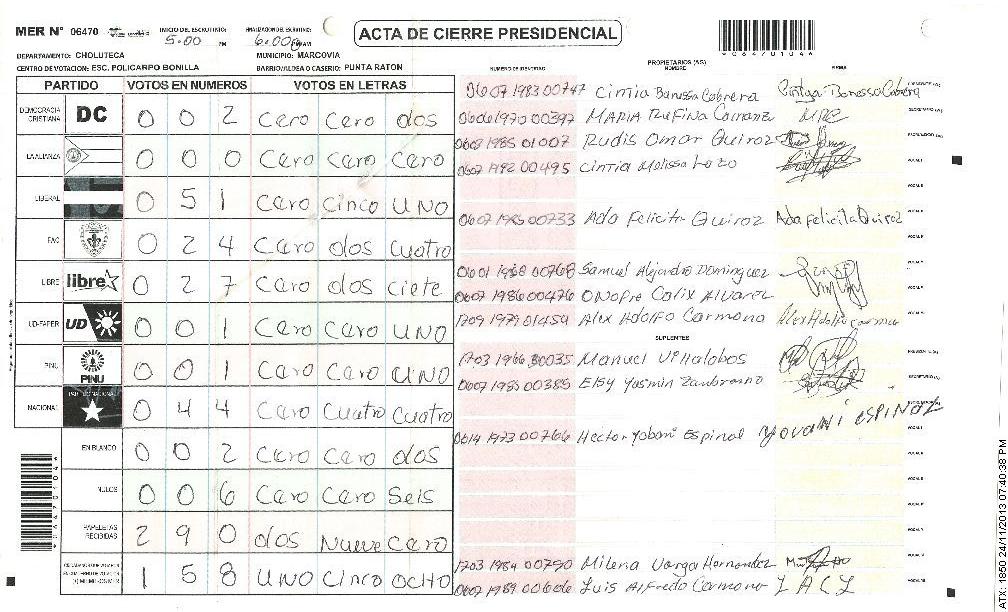 MER N° 06470
INICIO DEL ESCRUTINIO: 5:00 PM
FINALIZACION DEL ESCRUTINIO: 6:00
ACTA DE CIERRE PRESIDENCIAL
DEPARTAMENTO: CHOLUTECA
MUNICIPIO: MARCOVIA
CENTRO DE VOTACION: ESC. POLICARPO BONILLA
BARRIO/ALDEA O CASERIO: PUNTA RATON
PARTIDO VOTOS EN NUMEROS VOTOS EN LETRAS
DEMOCRACIA CRISTIANA DC 0 0 2 Cero Cero dos
LA ALIANZA 0 0 0 Cero Cero Cero
LIBERAL 0 5 1 Cero Cinco UNO
PAC 0 2 4 Cero dos Cuatro
LIBRE libre 0 2 7 Cero dos ciete
UD-FAPER UD 0 0 1 Cero Cero UNO
PINU PINU 0 0 1 Cero Cero UNO
NACIONAL PARTIDO NACIONAL 0 4 4 Cero Cuatro Cuatro
EN BLANCO 0 0 2 Cero Cero dos
NULOS 0 0 6 Cero Cero Seis
PAPELETAS RECIBIDAS 2 9 0 dos Nueve Cero
1 5 8 UNO Cinco OCHO
NUMERO DE IDENTIDAD PROPIETARIOS (AS) NOMBRE FIRMA
0607 1983 00747 Cintia Banessa Cabrera
0606 1970 00397 MARIA RUFINA Carranza MRC
0607 1985 01007 Rudis Omar Quiroz
0607 1992 00495 Cintia Melissa Lazo
0607 1985 00733 Ada Felicita Quiroz Ada Felicita Quiroz
0601 1968 00768 Samuel Alejandro Dominguez
0607 1986 00476 Onofre Calix Alvarez
1709 1979 01454 Alex Adolfo Carmona
SUPLENTES
1703 1966 00035 Manuel Villalobos
0607 1985 00385 Elsy Yasmin Zambrano
0614 1973 00766 Hector Yobani Espinal Yovani ESPINAL
1703 1984 00790 Milena Varga Hernandez
0607 1989 00606 Luis Alfredo Carmona L A C L
ATX: 1650 24/11/2013 07:40:38 PM